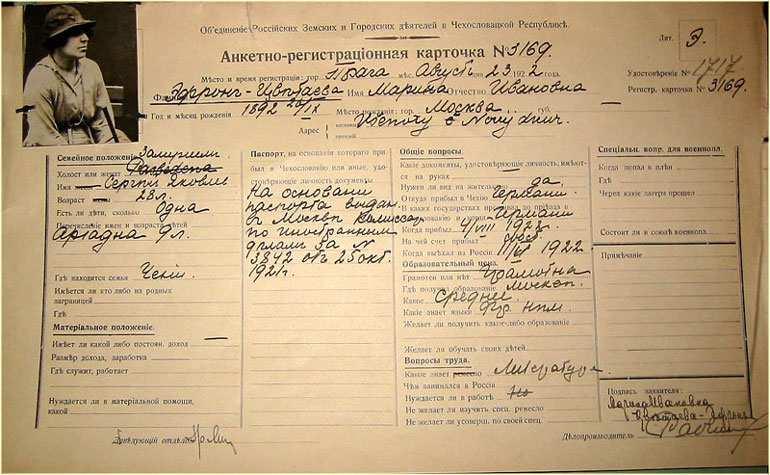 Объединеніе Россійских Земских и Городских дѣятелей в Чехословацкой Республикѣ.
Лит. Э.
Анкетно-регистраціонная карточка № 3169.
Мѣсто и время регистраціи: гор. Прага мѣс. Август 23 1922
Удостовѣреніе № 1717
Фамилія Эфрон-Цвѣтаева Имя Марина Отчество Ивановна
Регистр. карточка № 3169.
Год и мѣсяц рожденія 1892 26/IX Мѣсто рожденія: гор. Москва губ.
Адрес
Семейное положеніе: Замужем
Холост или женат
Имя Сергѣй Яковлев
Возраст 28 л.
Есть ли дѣти, сколько Одна
Перечисленіе имен и возраста дѣтей
Аріадна 9 л.
Гдѣ находится семья Чехіи
Имѣется ли кто либо из родных
заграницей
Гдѣ
Матеріальное положеніе.
Имѣет ли какой либо постоян. доход
Размѣр дохода, заработка
Гдѣ служит, работает
Нуждается ли в матеріальной помощи,
какой
Паспорт, на основаніи котораго при
был в Чехословакію или иные, удо
стовѣряющіе личность документы
На основани
паспорта выдан
в Москвѣ Комиссар
по иностранным
дѣлам за №
3842 от 25 окт.
1921 г.
Общіе вопросы:
Какіе документы, удостовѣряющіе личность, имѣют-
ся на руках
Нужен ли вид на жительс да
Откуда прибыл в Чехію Германи.
В каких государствах проживал до пріѣзда в
Германи
Когда прибыл 1/VIII 1922 г.
На чей счет прибыл
Когда выѣхал из Россіи 11/V 1922
Образовательный ценз.
Грамотен или нѣт Грамотна
Гдѣ получил образованіе Москв.
Какое Среднее
Какіе знает языки Фр. Нѣм.
Желает ли получить какое-либо образованіе
Желает ли обучать своих дѣтей
Вопросы труда.
Какое знает ремесло Литература
Чѣм занимался в Россіи
Нуждается ли в работѣ
Не желает ли изучить спец. ремесло
Не желает ли усоверш. по своей спец.
Спеціальн. вопр. для военнопл.
Когда попал в плѣн
Гдѣ
Через какіе лагеря прошел
Состоит ли в союзѣ военнопл.
Примѣчаніе
Подпись заявителя:
Марина Ивановна
Цвѣтаева-Эфрон
Завѣдующій отдѣлом
Дѣлопроизводитель